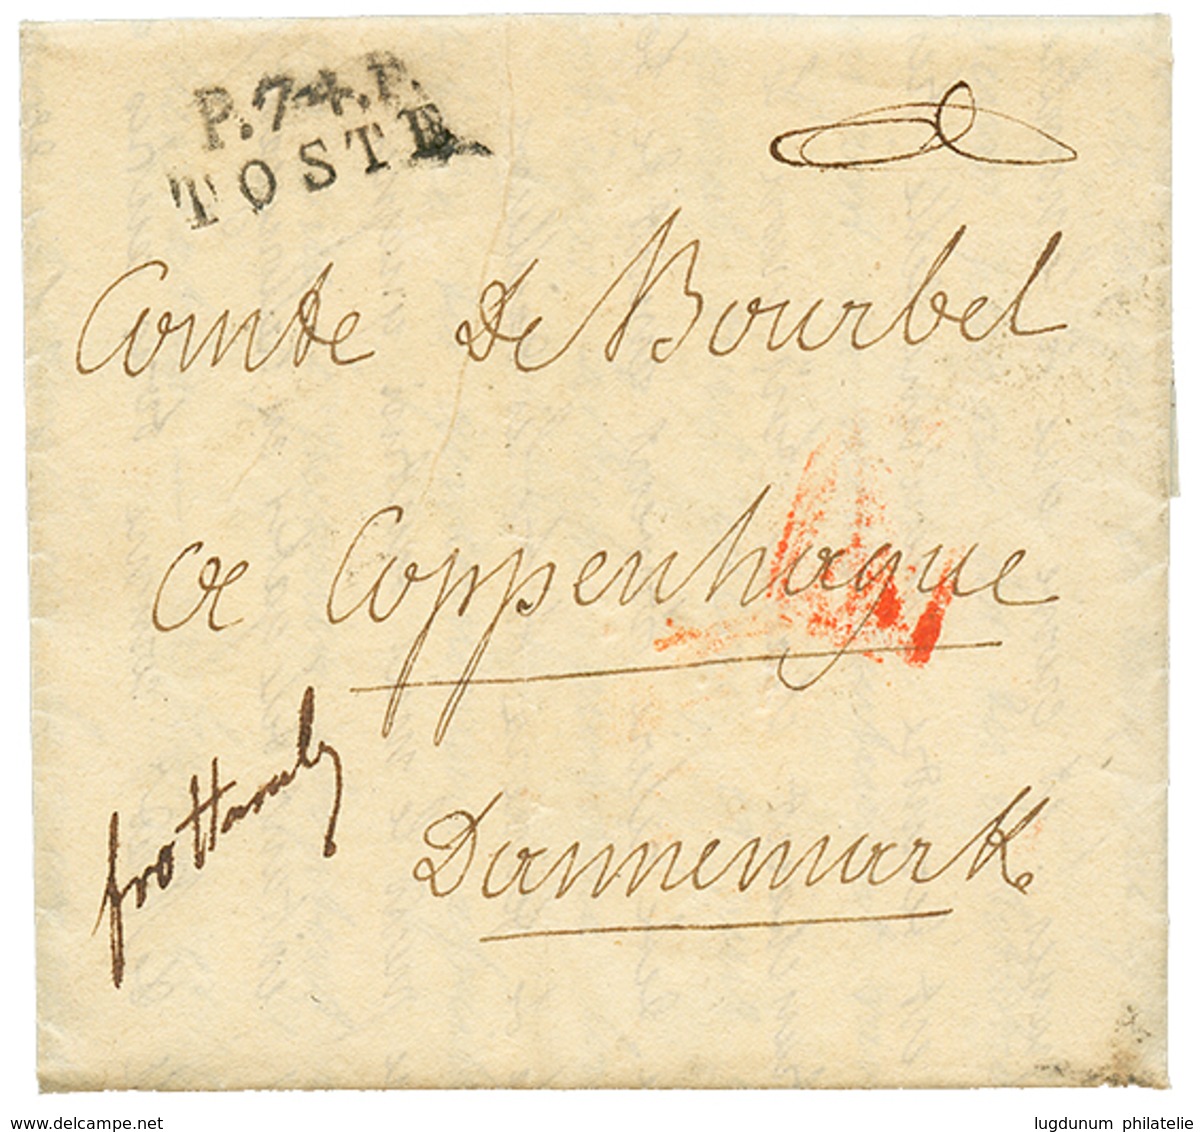 P.74.P.
TOSTE
Comte De Bourbel
a Coppenhague
fro Hamb
Dannemark
www.delcampe.net
lugdunum philatelie